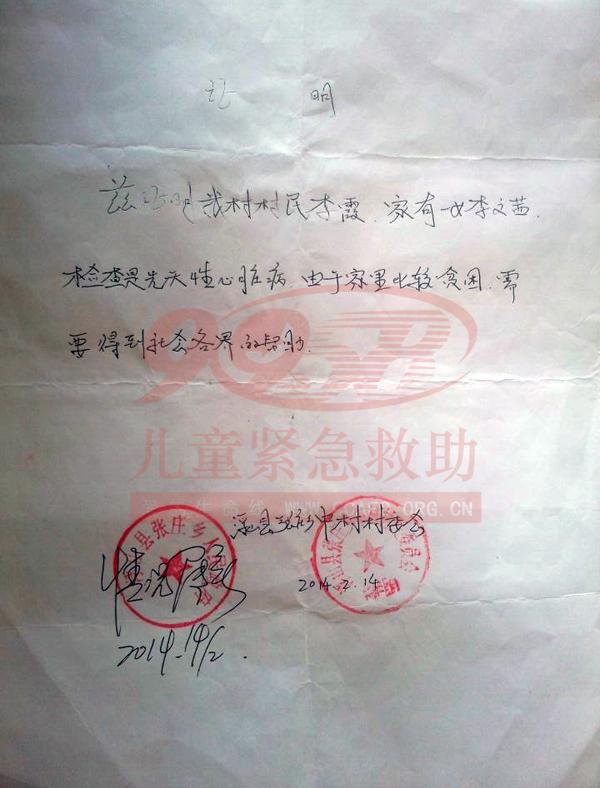 证 明
兹证明我村村民李霞.家有一女李文茜.
检查是先天性心脏病 由于家里比较贫困.需
要得到社会各界的帮助.
9958
儿童紧急救助
WWW.CAFP.ORG.CN
县张庄乡人
村村委会
2014.2.14
情况属实
2014.14/2.